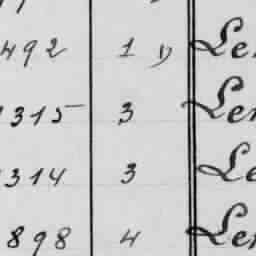 492 1 1) Le
315 3 Le
314 3 Le
898 4 Le